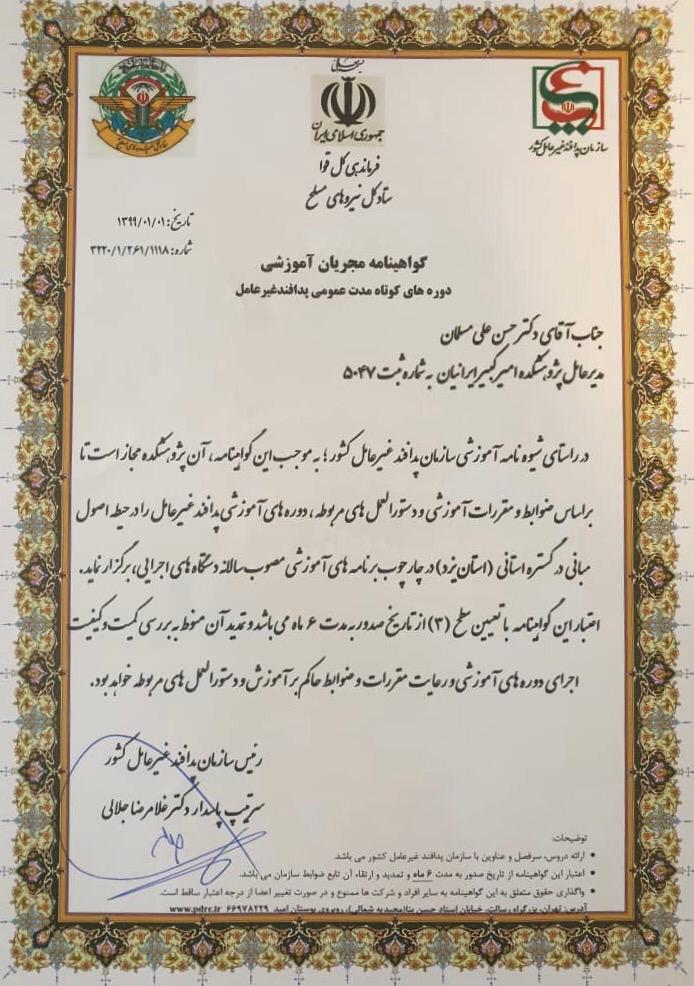 بسمه تعالی
جمهوری اسلامی ایران
سازمان پدافند غیرعامل کشور
فرماندهی کل قوا
ستاد کل نیروهای مسلح
تاریخ: ۱۳۹۹/۰۱/۰۱
شماره: ۳۲۲۰/۱/۲۶۱/۱۱۱۸
گواهینامه مجریان آموزشی
دوره های کوتاه مدت عمومی پدافندغیرعامل
جناب آقای دکتر حسن علی مسلمان
مدیرعامل پژوهشکده امیرکبیر ایرانیان به شماره ثبت ۵۰۴۷
در راستای شیوه نامه آموزشی سازمان پدافند غیرعامل کشور؛ به موجب این گواهینامه، آن پژوهشکده مجاز است تا
براساس ضوابط و مقررات آموزشی و دستورالعمل های مربوطه، دوره های آموزشی پدافند غیرعامل را در حیطه اصول
مبانی در گستره استانی (استان یزد) در چارچوب برنامه های آموزشی مصوب سالانه دستگاه های اجرایی، برگزار نماید.
اعتبار این گواهینامه با تعیین سطح (۳) از تاریخ صدور به مدت ۶ ماه می باشد و تمدید آن منوط به بررسی کمیت و کیفیت
اجرای دوره های آموزشی و رعایت مقررات و ضوابط حاکم بر آموزش و دستورالعمل های مربوطه خواهد بود.
رئیس سازمان پدافند غیرعامل کشور
سرتیپ پاسدار دکتر غلامرضا جلالی
توضیحات:
• ارائه دروس، سرفصل و عناوین با سازمان پدافند غیرعامل کشور می باشد.
• اعتبار این گواهینامه از تاریخ صدور به مدت ۶ ماه و تمدید و ارتقاء آن تابع ضوابط سازمان می باشد.
• واگذاری حقوق متعلق به این گواهینامه به سایر افراد و شرکت ها ممنوع و در صورت تغییر اعضا از درجه اعتبار ساقط است.
آدرس: تهران، بزرگراه رسالت، خیابان استاد حسن بنا(مجیدیه شمالی)، روبروی بوستان امید ۶۶۹۷۸۲۲۹ www.pdrc.ir